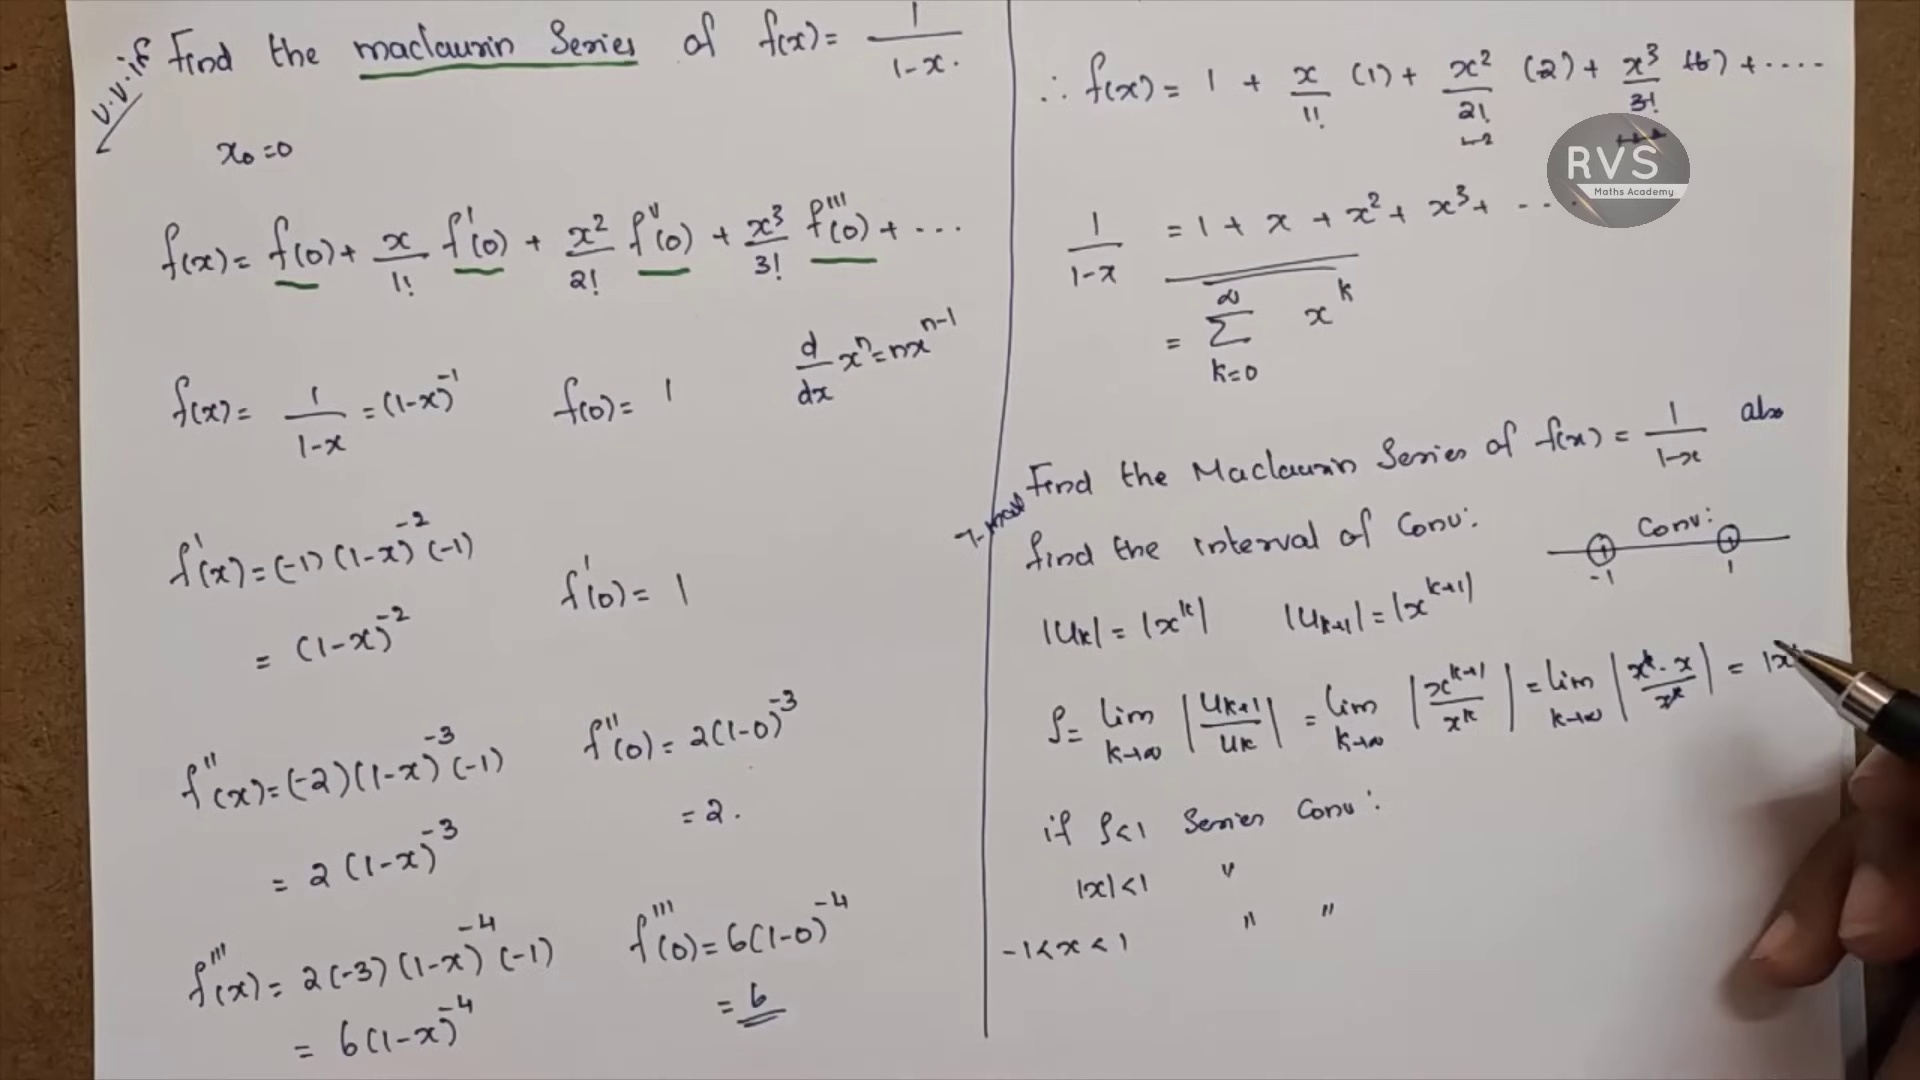 v.v.if Find the maclaurin Series of f(x) = 1/(1-x).
x₀=0
f(x) = f(0) + x/1! f'(0) + x²/2! f''(0) + x³/3! f'''(0) + ...
d/dx xⁿ = nxⁿ⁻¹
f(x) = 1/(1-x) = (1-x)⁻¹ f(0) = 1
f'(x) = (-1)(1-x)⁻²(-1) f'(0) = 1
= (1-x)⁻²
f''(x) = (-2)(1-x)⁻³(-1) f''(0) = 2(1-0)⁻³
= 2(1-x)⁻³ = 2.
f'''(x) = 2(-3)(1-x)⁻⁴(-1) f'''(0) = 6(1-0)⁻⁴
= 6(1-x)⁻⁴ = 6
∴ f(x) = 1 + x/1! (1) + x²/2! (2) + x³/3! (6) + ....
RVS
Maths Academy
1/(1-x) = 1 + x + x² + x³ + ...
= ∞ Σ k=0 xᵏ
Find the Maclaurin Series of f(x) = 1/(1-x) also
find the interval of Conv:
Conv:
-1 1
|uₖ| = |xᵏ| |uₖ₊₁| = |xᵏ⁺¹|
ρ = lim k→∞ |uₖ₊₁/uₖ| = lim k→∞ |xᵏ⁺¹/xᵏ| = lim k→∞ |xᵏ·x/xᵏ| = |x|
if ρ<1 Series Conv:
|x|<1 "
-1<x<1 " "